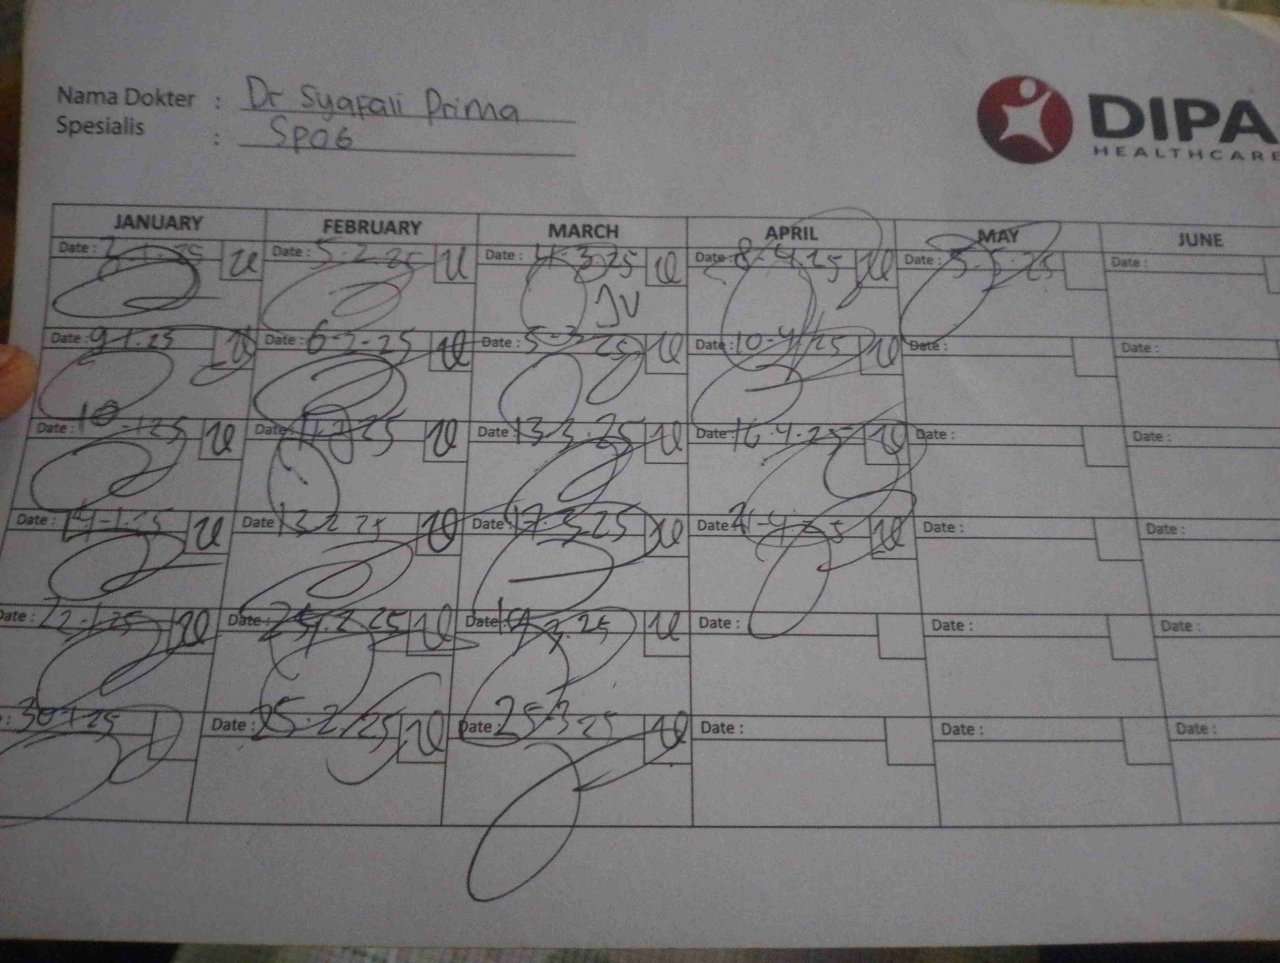 Nama Dokter : Dr Syafali Prima
Spesialis : SpOG
DIPA
HEALTHCARE
JANUARY FEBRUARY MARCH APRIL MAY JUNE
Date : Date : 5-2-25 Date : 4-3-25 Date : 8-4-25 Date : 5-5-25 Date :
JV
Date : 9-1-25 Date : 6-2-25 Date : 5-3-25 Date : 10-4-25 Date : Date :
Date : 10-1-25 Date : Date : 13-3-25 Date : 16-4-25 Date : Date :
Date : 14-1-25 Date : 13-2-25 Date : 17-3-25 Date : 21-4-25 Date : Date :
Date : 22-1-25 Date : 24-2-25 Date : 19-3-25 Date : Date : Date :
: 30-1-25 Date : 25-2-25 Date : 25-3-25 Date : Date : Date :